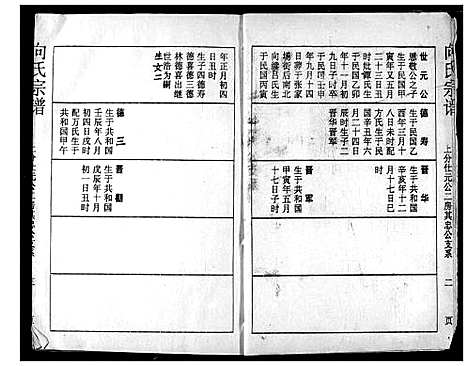 向氏宗谱
上分仕元公二房其忠公支系
二
页
世元公
恩敬公之子
生于民国甲
寅年又五月
二十三日子
时妣谭氏生
于民国乙卯
九日子时卒
于民国壬申
年九月十四
日葬于张家
场街后南北
向续吕氏生
于民国丙寅
年正月初四
日丑时
生子四德寿
德喜德三德
林德喜出继
世浩为嗣
生女二
德寿
生于民国乙
酉年三月十
八日未时配
方氏生于民
国辛丑年六
月二十四日
辰时生子二
晋华晋军
德三
生于共和国
壬辰年八月
初四日戌时
配万氏生于
共和国甲午
晋华
生于共和国
辛亥年十二
月十七日巳
时
晋军
生于共和国
甲寅年五月
十七日子时
晋勤
生于共和国
戊辰年十月
初一日丑时
向氏宗谱